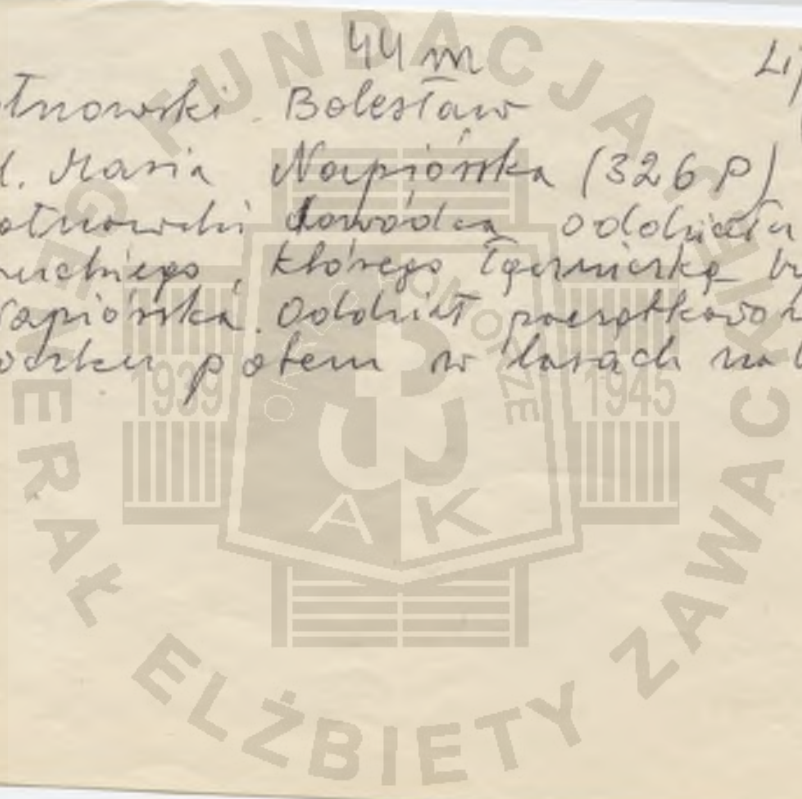 44 m Lip
otnowski. Bolesław
l. Maria Napiórska (326 P)
otnowski dowódca oddziału
ruckiego, którego łączniczką by
Napiórska. Oddział początkowo
potem w lasach na
FUNDACJA GENERAŁ ELŻBIETY ZAWACKIEJ
OKRĘG POMORZE
1939 1945
AK